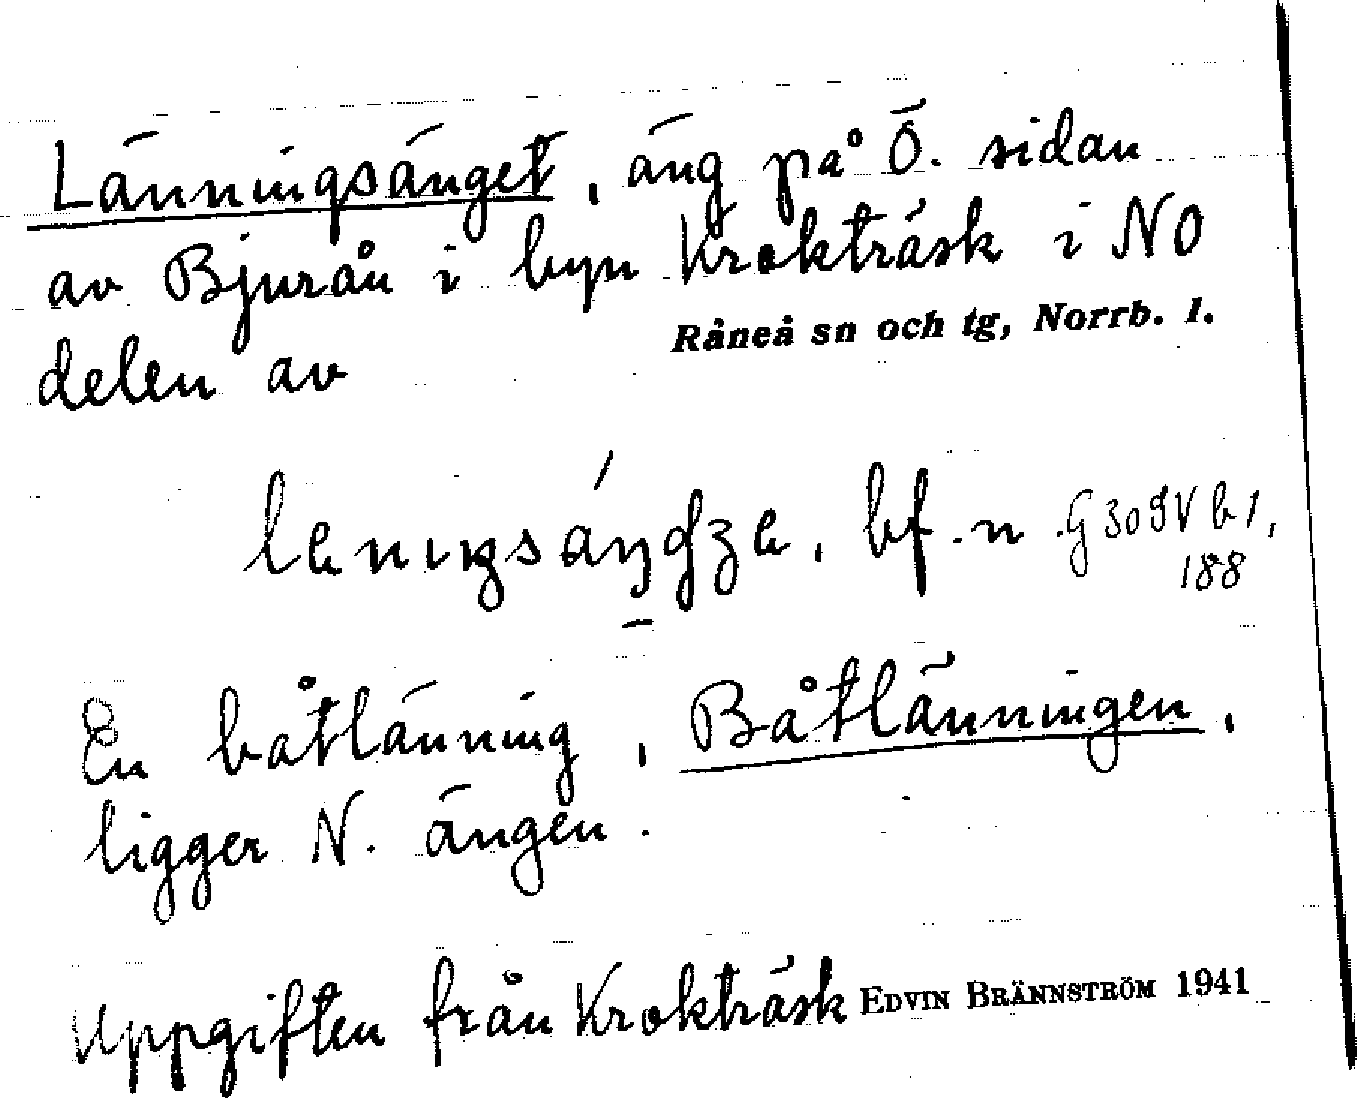 Länningsänget, äng på Ö. sidan
av Bjurån i byn Krokträsk i NO
delen av Råneå sn och tg, Norrb. l.
bf. n G309V b1,
188
En båtlänning, Båtlänningen,
ligger N. ängen.
Uppgiften från Krokträsk EDVIN BRÄNNSTRÖM 1941